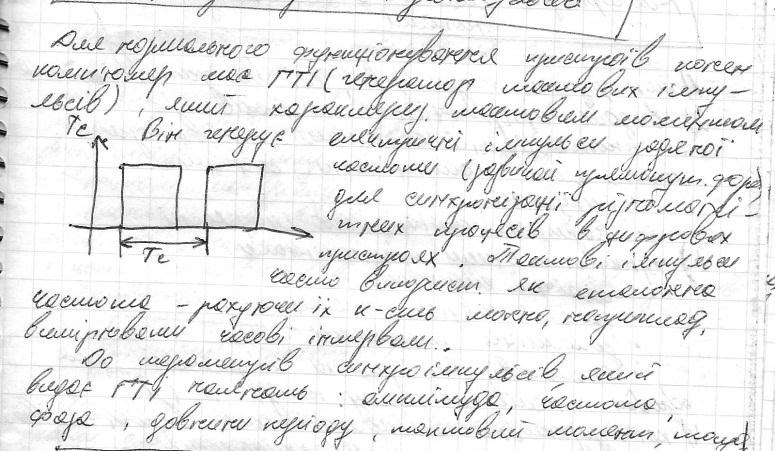 Для нормального функціонування пристроїв кожен
комп'ютер має ГТІ (генератор тактових імпу-
льсів), який характериз. тактовим моментом
Tc Він генерує електричні імпульси заданої
частоти (зазвичай прямокут. форми)
для синхронізації різномані-
тних процесів в цифрових
Tc пристроях. Тактові імпульси
часто використ. як еталонна
частота - рахуючи їх к-сть можна, наприклад,
вимірювати часові інтервали.
До параметрів синхроімпульсів, який
видає ГТІ належать: амплітуда, частота,
фаза, довжини періоду, тактовий момент, тощо